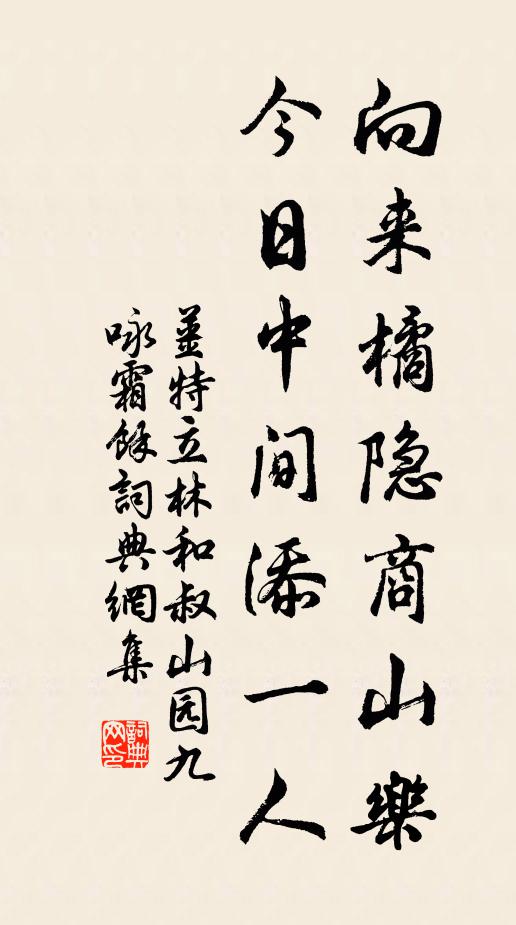 向来橘隐商山樂
今日中间添一人
姜特立林和叔山园九
咏霜餘詞典網集
詞典網印